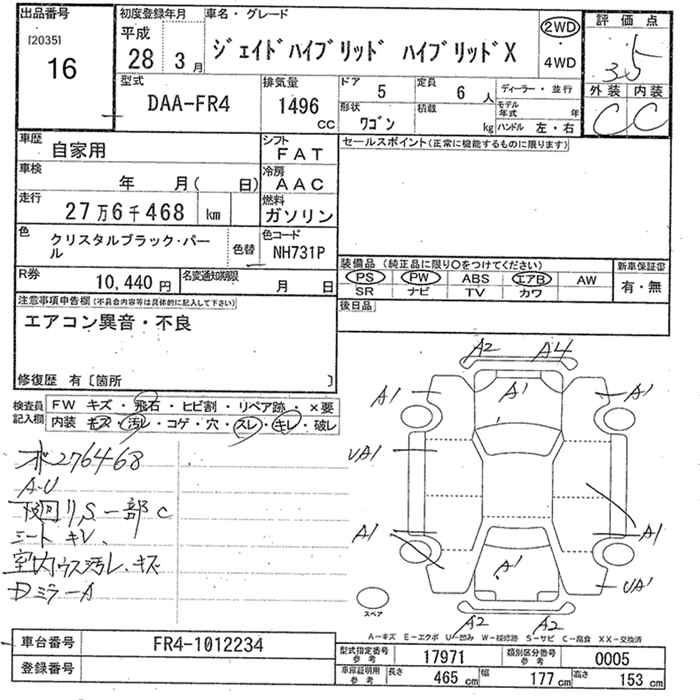 出品番号
[2035]
16
初度登録年月
平成
28 3 月
車名・グレード
ジェイドハイブリッド ハイブリッドX
2WD
・
4WD
評価点
3.5
外装 内装
C C
型式
DAA-FR4
排気量
1496
cc
ドア
5
定員
6 人
形状
ワゴン
積載
kg
ディーラー・並行
モデル年式 年
ハンドル 左・右
車歴
自家用
シフト
FAT
セールスポイント(正常に機能するものに限ります)
車検
年 月( 日)
冷房
AAC
走行
27万6千468 km
燃料
ガソリン
色
クリスタルブラック・パール
色替
色コード
NH731P
R券
10,440 円
名変通知期限
月 日
装備品(純正品に限り○をつけてください)
PS PW ABS エアB AW
SR ナビ TV カワ
新車保証書
有・無
後日品
注意事項申告欄(不具合内容等は具体的に記入して下さい)
エアコン異音・不良
修復歴 有〔箇所 〕
検査員記入欄
FW キズ・飛石・ヒビ割・リペア跡・×要
内装 キズ・汚レ・コゲ・穴・スレ・キレ・破レ
276468
A-U
下回リS一部C
シートキレ、
室内ウス汚レ、キズ
DミラーA
A2 A4
A1 A1 A1
UA1
A1 A1
A1
UA1
A2 A2
スペア
A-キズ E-エクボ U-凹み W-補修跡 S-サビ C-腐食 XX-交換済
車台番号
FR4-1012234
登録番号
型式指定番号
参考
17971
類別区分番号
参考
0005
車庫証明用
参考
長さ
465 cm
幅
177 cm
高さ
153 cm